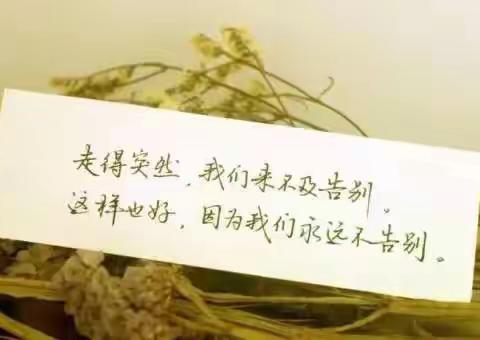 走得突然，我们来不及告别。
这样也好，因为我们永远不告别。